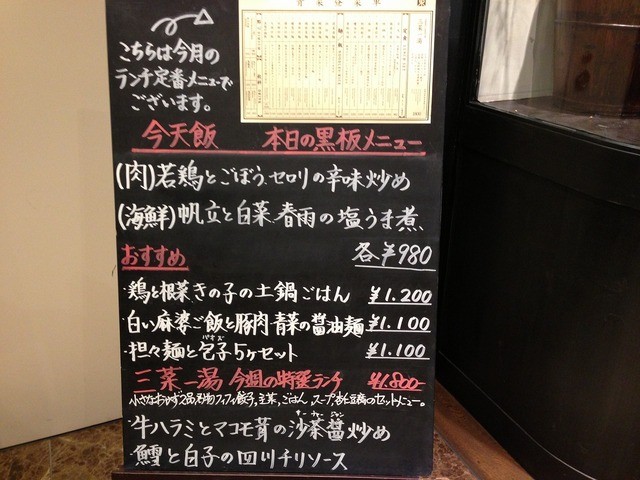 こちらは今月の
ランチ定番メニューで
ございます。
今天飯 本日の黒板メニュー
(肉)若鶏とごぼう、セロリの辛味炒め
(海鮮)帆立と白菜、春雨の塩うま煮
各¥980
おすすめ
・鶏と根菜きの子の土鍋ごはん ¥1.200
・白い麻婆ご飯と豚肉青菜の醤油麺 ¥1.100
・担々麺と包子5ヶセット ¥1.100
三菜一湯 今週の特選ランチ ¥1.800-
小さなおかず2品、 主菜、ごはん、スープ、 のセットメニュー。
・牛ハラミとマコモ茸の沙茶醤炒め
・鱈と白子の四川チリソース